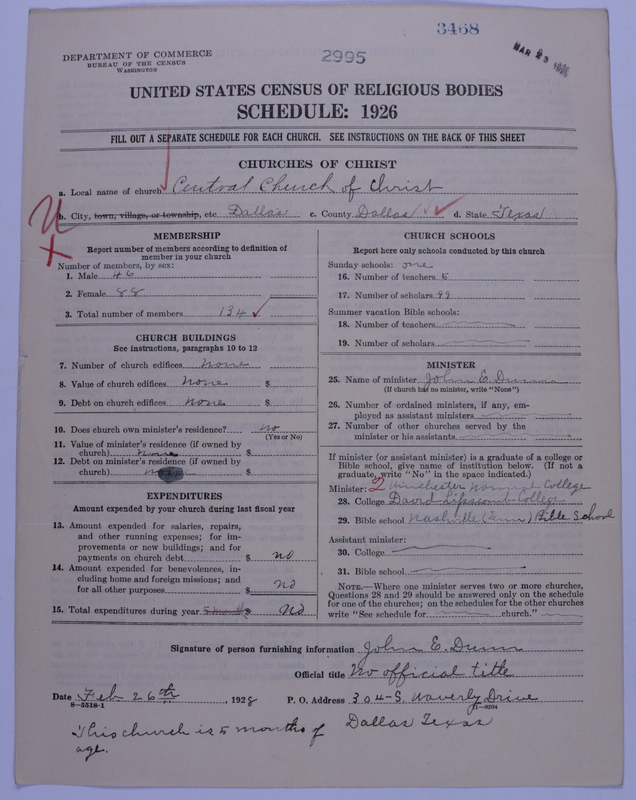 3468
DEPARTMENT OF COMMERCE
BUREAU OF THE CENSUS
WASHINGTON
2995
MAR 23
UNITED STATES CENSUS OF RELIGIOUS BODIES
SCHEDULE: 1926
FILL OUT A SEPARATE SCHEDULE FOR EACH CHURCH. SEE INSTRUCTIONS ON THE BACK OF THIS SHEET
CHURCHES OF CHRIST
a. Local name of church Central Church of Christ
b. City, town, village, or township, etc. Dallas c. County Dallas d. State Texas
U
X
MEMBERSHIP
Report number of members according to definition of
member in your church
Number of members, by sex:
1. Male 46
2. Female 88
3. Total number of members 134
CHURCH BUILDINGS
See instructions, paragraphs 10 to 12
7. Number of church edifices none
8. Value of church edifices none $
9. Debt on church edifices none $
10. Does church own minister's residence? no
(Yes or No)
11. Value of minister's residence (if owned by
church) none $
12. Debt on minister's residence (if owned by
church) $
EXPENDITURES
Amount expended by your church during last fiscal year
13. Amount expended for salaries, repairs,
and other running expenses; for im-
provements or new buildings; and for
payments on church debt $ no
14. Amount expended for benevolences, in-
cluding home and foreign missions; and
for all other purposes $ no
15. Total expenditures during year 5 months No
CHURCH SCHOOLS
Report here only schools conducted by this church
Sunday schools: one
16. Number of teachers 5
17. Number of scholars 99
Summer vacation Bible schools:
18. Number of teachers
19. Number of scholars
MINISTER
25. Name of minister John E. Dunn
(If church has no minister, write "None")
26. Number of ordained ministers, if any, em-
ployed as assistant ministers
27. Number of other churches served by the
minister or his assistants
If minister (or assistant minister) is a graduate of a college or
Bible school, give name of institution below. (If not a
graduate, write "No" in the space indicated.)
Minister: 2 Winchester Normal College
28. College David Lipscomb College
29. Bible school Nashville (Tenn) Bible School
Assistant minister:
30. College
31. Bible school
NOTE.—Where one minister serves two or more churches,
Questions 28 and 29 should be answered only on the schedule
for one of the churches; on the schedules for the other churches
write "See schedule for church."
Signature of person furnishing information John E. Dunn
Official title No official title
Date Feb 26th, 1928 P. O. Address 304-S. Waverly Drive
8—5518-1 11—9204
Dallas Texas
This church is 5 months of
age.